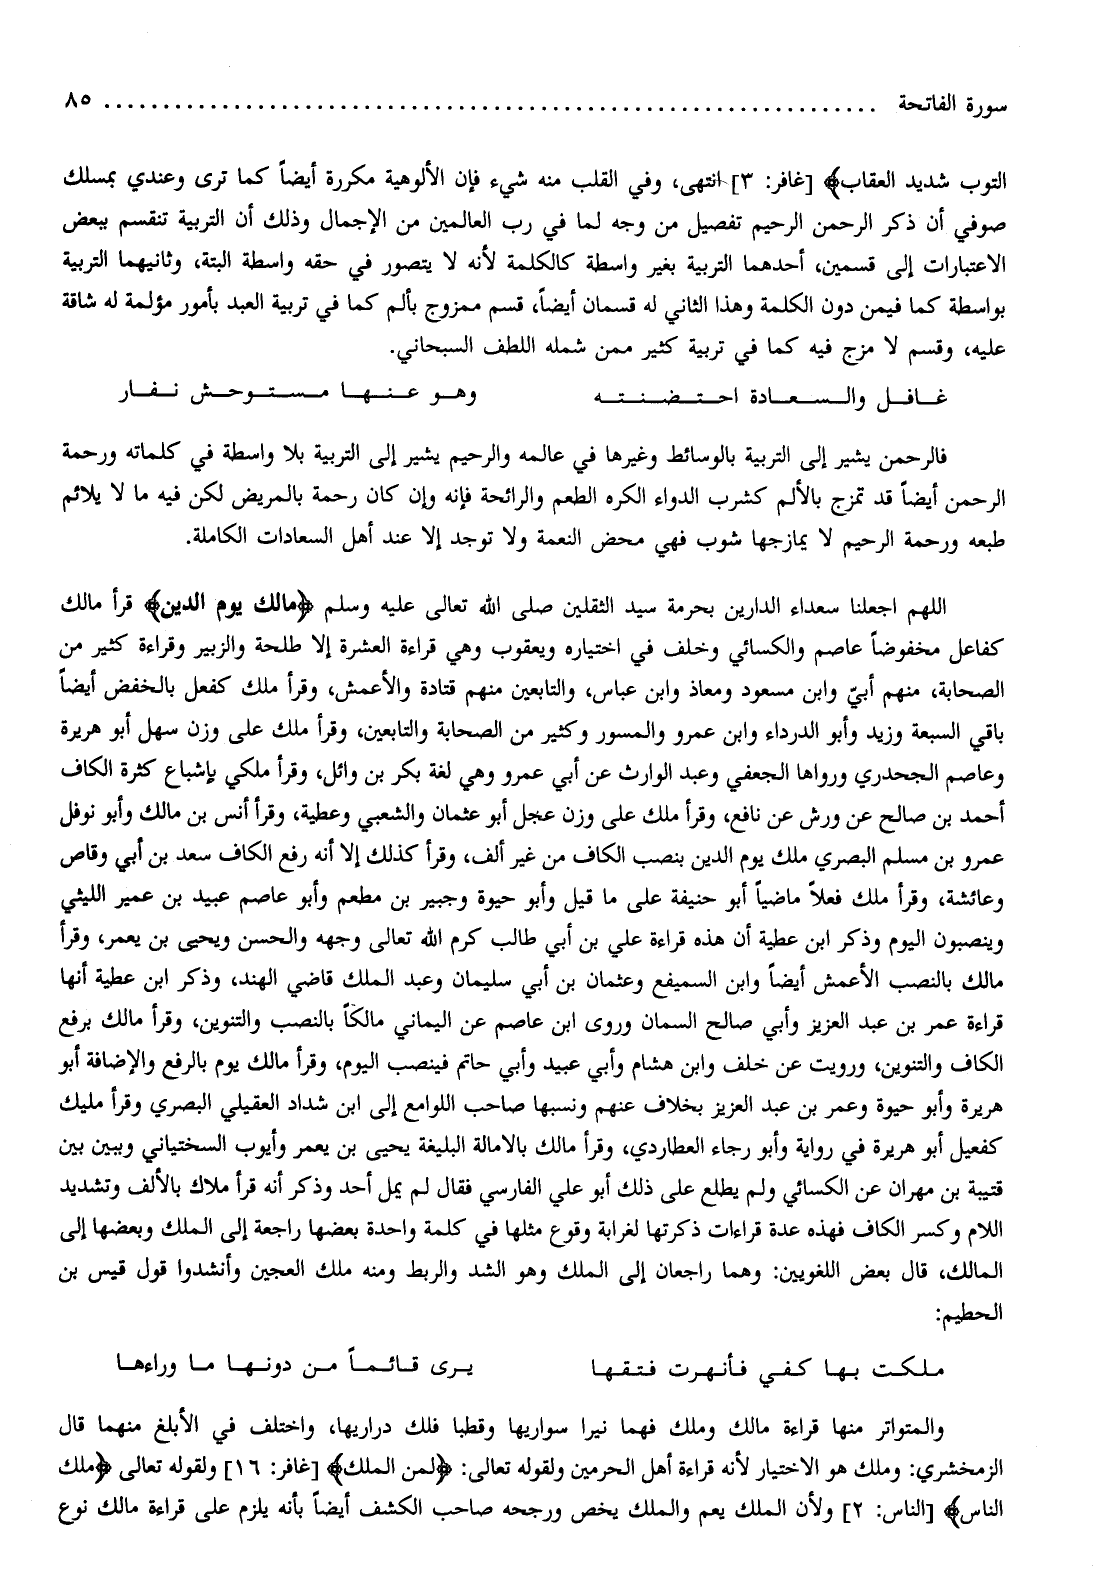 سورة الفاتحة ........................................................ ٨٥
التوب شديد العقاب﴾ [غافر: ٣] انتهى، وفي القلب منه شيء فإن الألوهية مكررة أيضاً كما ترى وعندي بمسلك
صوفي أن ذكر الرحمن الرحيم تفصيل من وجه لما في رب العالمين من الإجمال وذلك أن التربية تنقسم ببعض
الاعتبارات إلى قسمين، أحدهما التربية بغير واسطة كالكلمة لأنه لا يتصور في حقه واسطة البتة، وثانيهما التربية
بواسطة كما فيمن دون الكلمة وهذا الثاني له قسمان أيضاً، قسم ممزوج بألم كما في تربية العبد بأمور مؤلمة له شاقة
عليه، وقسم لا مزج فيه كما في تربية كثير ممن شمله اللطف السبحاني.
غافل والسعادة احتضنته وهو عنها مستوحش نفار
فالرحمن يشير إلى التربية بالوسائط وغيرها في عالمه والرحيم يشير إلى التربية بلا واسطة في كلماته ورحمة
الرحمن أيضاً قد تمزج بالألم كشرب الدواء الكره الطعم والرائحة فإنه وإن كان رحمة بالمريض لكن فيه ما لا يلائم
طبعه ورحمة الرحيم لا يمازجها شوب فهي محض النعمة ولا توجد إلا عند أهل السعادات الكاملة.
اللهم اجعلنا سعداء الدارين بحرمة سيد الثقلين صلى الله تعالى عليه وسلم ﴿مالك يوم الدين﴾ قرأ مالك
كفاعل مخفوضاً عاصم والكسائي وخلف في اختياره ويعقوب وهي قراءة العشرة إلا طلحة والزبير وقراءة كثير من
الصحابة، منهم أبيّ وابن مسعود ومعاذ وابن عباس، والتابعين منهم قتادة والأعمش، وقرأ ملك كفعل بالخفض أيضاً
باقي السبعة وزيد وأبو الدرداء وابن عمرو والمسور وكثير من الصحابة والتابعين، وقرأ ملك على وزن سهل أبو هريرة
وعاصم الجحدري ورواها الجعفي وعبد الوارث عن أبي عمرو وهي لغة بكر بن وائل، وقرأ ملكي بإشباع كثرة الكاف
أحمد بن صالح عن ورش عن نافع، وقرأ ملك على وزن عجل أبو عثمان والشعبي وعطية، وقرأ أنس بن مالك وأبو نوفل
عمرو بن مسلم البصري ملك يوم الدين بنصب الكاف من غير ألف، وقرأ كذلك إلا أنه رفع الكاف سعد بن أبي وقاص
وعائشة، وقرأ ملك فعلاً ماضياً أبو حنيفة على ما قيل وأبو حيوة وجبير بن مطعم وأبو عاصم عبيد بن عمير الليثي
وينصبون اليوم وذكر ابن عطية أن هذه قراءة علي بن أبي طالب كرم الله تعالى وجهه والحسن ويحيى بن يعمر، وقرأ
مالك بالنصب الأعمش أيضاً وابن السميفع وعثمان بن أبي سليمان وعبد الملك قاضي الهند، وذكر ابن عطية أنها
قراءة عمر بن عبد العزيز وأبي صالح السمان وروى ابن عاصم عن اليماني مالكاً بالنصب والتنوين، وقرأ مالك برفع
الكاف والتنوين، ورويت عن خلف وابن هشام وأبي عبيد وأبي حاتم فينصب اليوم، وقرأ مالك يوم بالرفع والإضافة أبو
هريرة وأبو حيوة وعمر بن عبد العزيز بخلاف عنهم ونسبها صاحب اللوامع إلى ابن شداد العقيلي البصري وقرأ مليك
كفعيل أبو هريرة في رواية وأبو رجاء العطاردي، وقرأ مالك بالامالة البليغة يحيى بن يعمر وأيوب السختياني وببين بين
قتيبة بن مهران عن الكسائي ولم يطلع على ذلك أبو علي الفارسي فقال لم يمل أحد وذكر أنه قرأ ملاك بالألف وتشديد
اللام وكسر الكاف فهذه عدة قراءات ذكرتها لغرابة وقوع مثلها في كلمة واحدة بعضها راجعة إلى الملك وبعضها إلى
المالك، قال بعض اللغويين: وهما راجعان إلى الملك وهو الشد والربط ومنه ملك العجين وأنشدوا قول قيس بن
الحطيم:
ملكت بها كفي فأنهرت فتقها يرى قائماً من دونها ما وراءها
والمتواتر منها قراءة مالك وملك فهما نيرا سواريها وقطبا فلك دراريها، واختلف في الأبلغ منهما قال
الزمخشري: وملك هو الاختيار لأنه قراءة أهل الحرمين ولقوله تعالى: ﴿لمن الملك﴾ [غافر: ١٦] ولقوله تعالى ﴿ملك
الناس﴾ [الناس: ٢] ولأن الملك يعم والملك يخص ورجحه صاحب الكشف أيضاً بأنه يلزم على قراءة مالك نوع